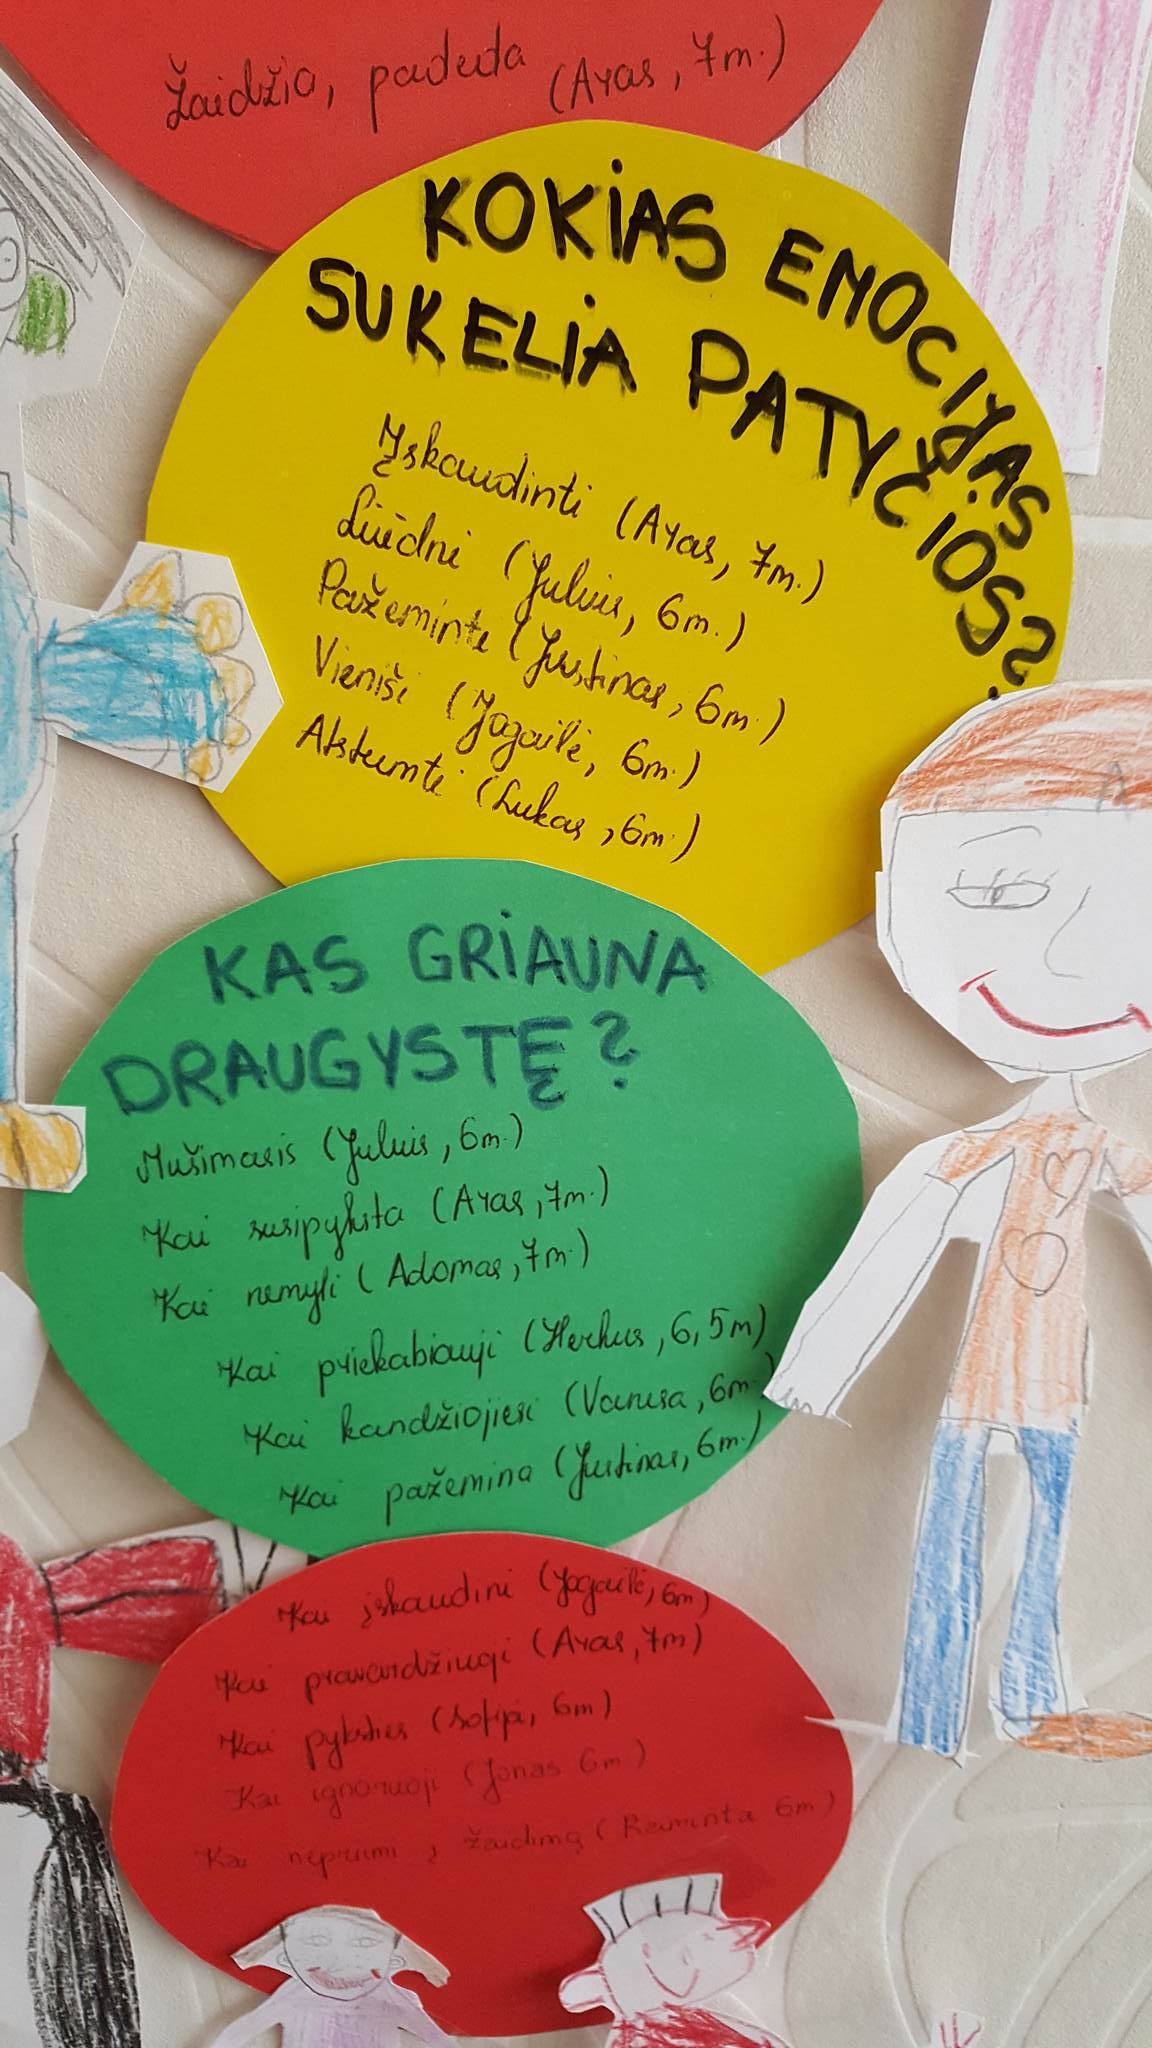 Žaidžia, padeda (Aras, 7m.)
KOKIAS EMOCIJAS
SUKELIA PATYČIOS?
Įskaudinti (Aras, 7m.)
Liūdni (Julius, 6m.)
Pažeminti (Justinas, 6m.)
Vieniši (Jogailė, 6m.)
Atstumti (Lukas, 6m.)
KAS GRIAUNA
DRAUGYSTĘ?
Mušimasis (Julius, 6m.)
Kai susipyksta (Aras, 7m.)
Kai nemyli (Adomas, 7m.)
Kai priekabiauji (Herkus, 6,5m)
Kai kandžiojiesi (Vanesa, 6m.)
Kai pažemina (Justinas, 6m.)
Kai įskaudini (Jogailė, 6m)
Kai pravardžiuoji (Aras, 7m)
Kai pyksties (Sofija, 6m)
Kai ignoruoji (Jonas 6m)
Kai nepriimi į žaidimą (Raminta 6m)